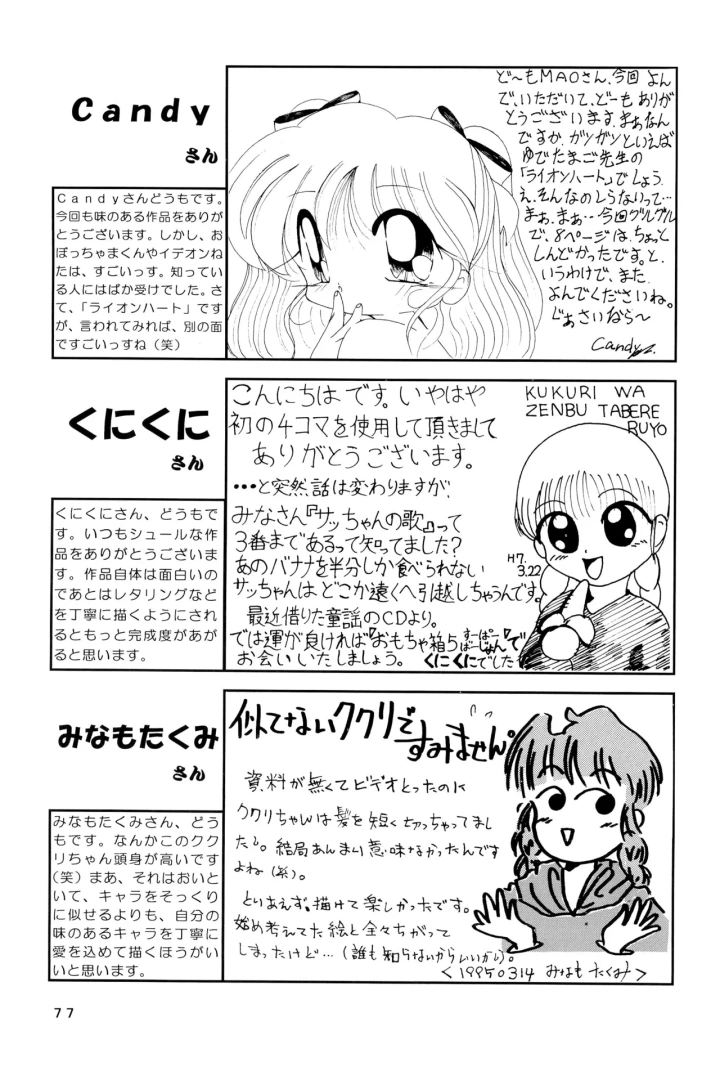 Candy
さん
Candyさんどうもです。
今回も味のある作品をありが
とうございます。しかし、お
ぼっちゃまくんやイデオンね
たは、すごいっす。知ってい
る人にはばか受けでした。さ
て、「ライオンハート」です
が、言われてみれば、別の面
ですごいっすね（笑）
ど〜もMAOさん、今回 よん
で、いただいて、どーも ありが
とうございます。まぁなん
ですか、ガンガンといえば
ゆでたまご先生の
「ライオンハート」でしょう。
え、そんなのしらないって…
まぁ、まぁ…今回グルグル
で、8ページは、ちょっと
しんどかったです。と、
いうわけで、また、
よんでくださいね。
じぁさいなら〜
Candy
くにくに
さん
くにくにさん、どうもで
す。いつもシュールな作
品をありがとうございま
す。作品自体は面白いの
であとはレタリングなど
を丁寧に描くようにされ
るともっと完成度があが
ると思います。
こんにちは です。いやはや
初の4コマを使用して頂きまして
ありがとうございます。
・・・と突然話は変わりますが、
みなさん『サッちゃんの歌』って
3番まであるって知ってました？
あのバナナを半分しか食べられない
サッちゃんは どこか遠くへ引越しちゃうんです。
最近借りた童謡のCDより。
では運が良ければ『おもちゃ箱5すーぱーばーじょん』で
お会いいたしましょう。 くにくにでした
KUKURI WA
ZENBU TABERE
RUYO
H7.
3.22
みなもたくみ
さん
みなもたくみさん、どう
もです。なんかこのクク
リちゃん頭身が高いです
（笑）まあ、それはおいと
いて、キャラをそっくり
に似せるよりも、自分の
味のあるキャラを丁寧に
愛を込めて描くほうがい
いと思います。
似てないククリで
すみません。
資料が無くてビデオとったのに
ククリちゃんは髪を短く切っちゃってまし
たよ。結局あんまり意味なかったんです
よね（笑）。
とりあえず、描けて楽しかったです。
始め考えてた絵と全々ちがって
しまったけど…（誰も知らないからいいかし）。
＜19950314 みなもたくみ＞
77